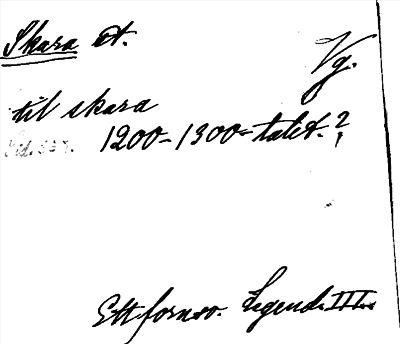 Skara st.
Vg.
til skara
1200-1300-talet. ?
Ett fornsv. Legend. III